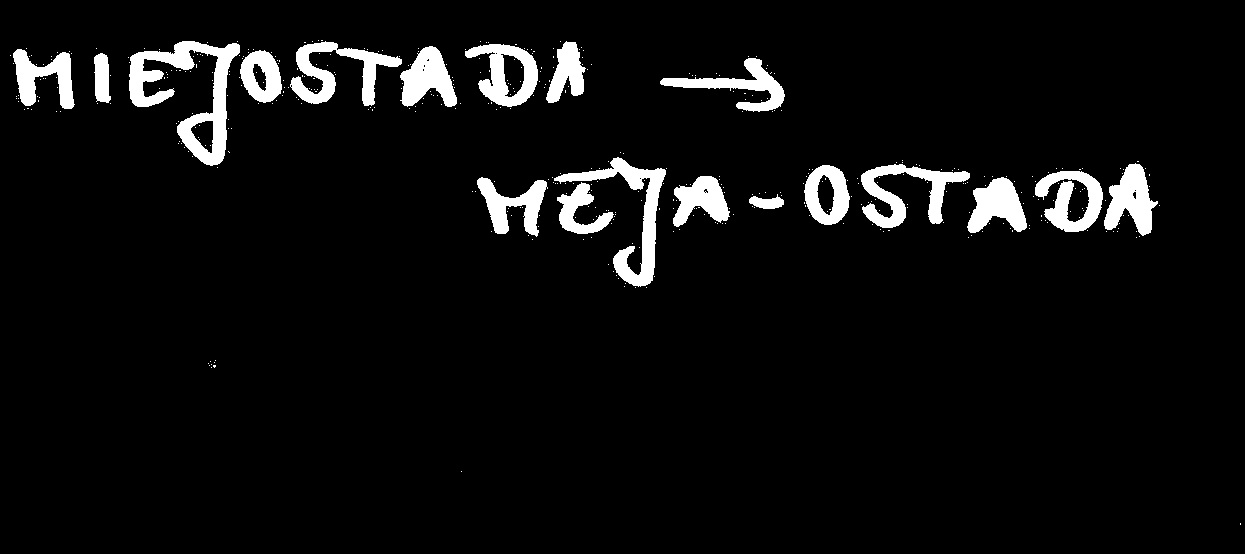 MIEJOSTADA →
MEJA-OSTADA